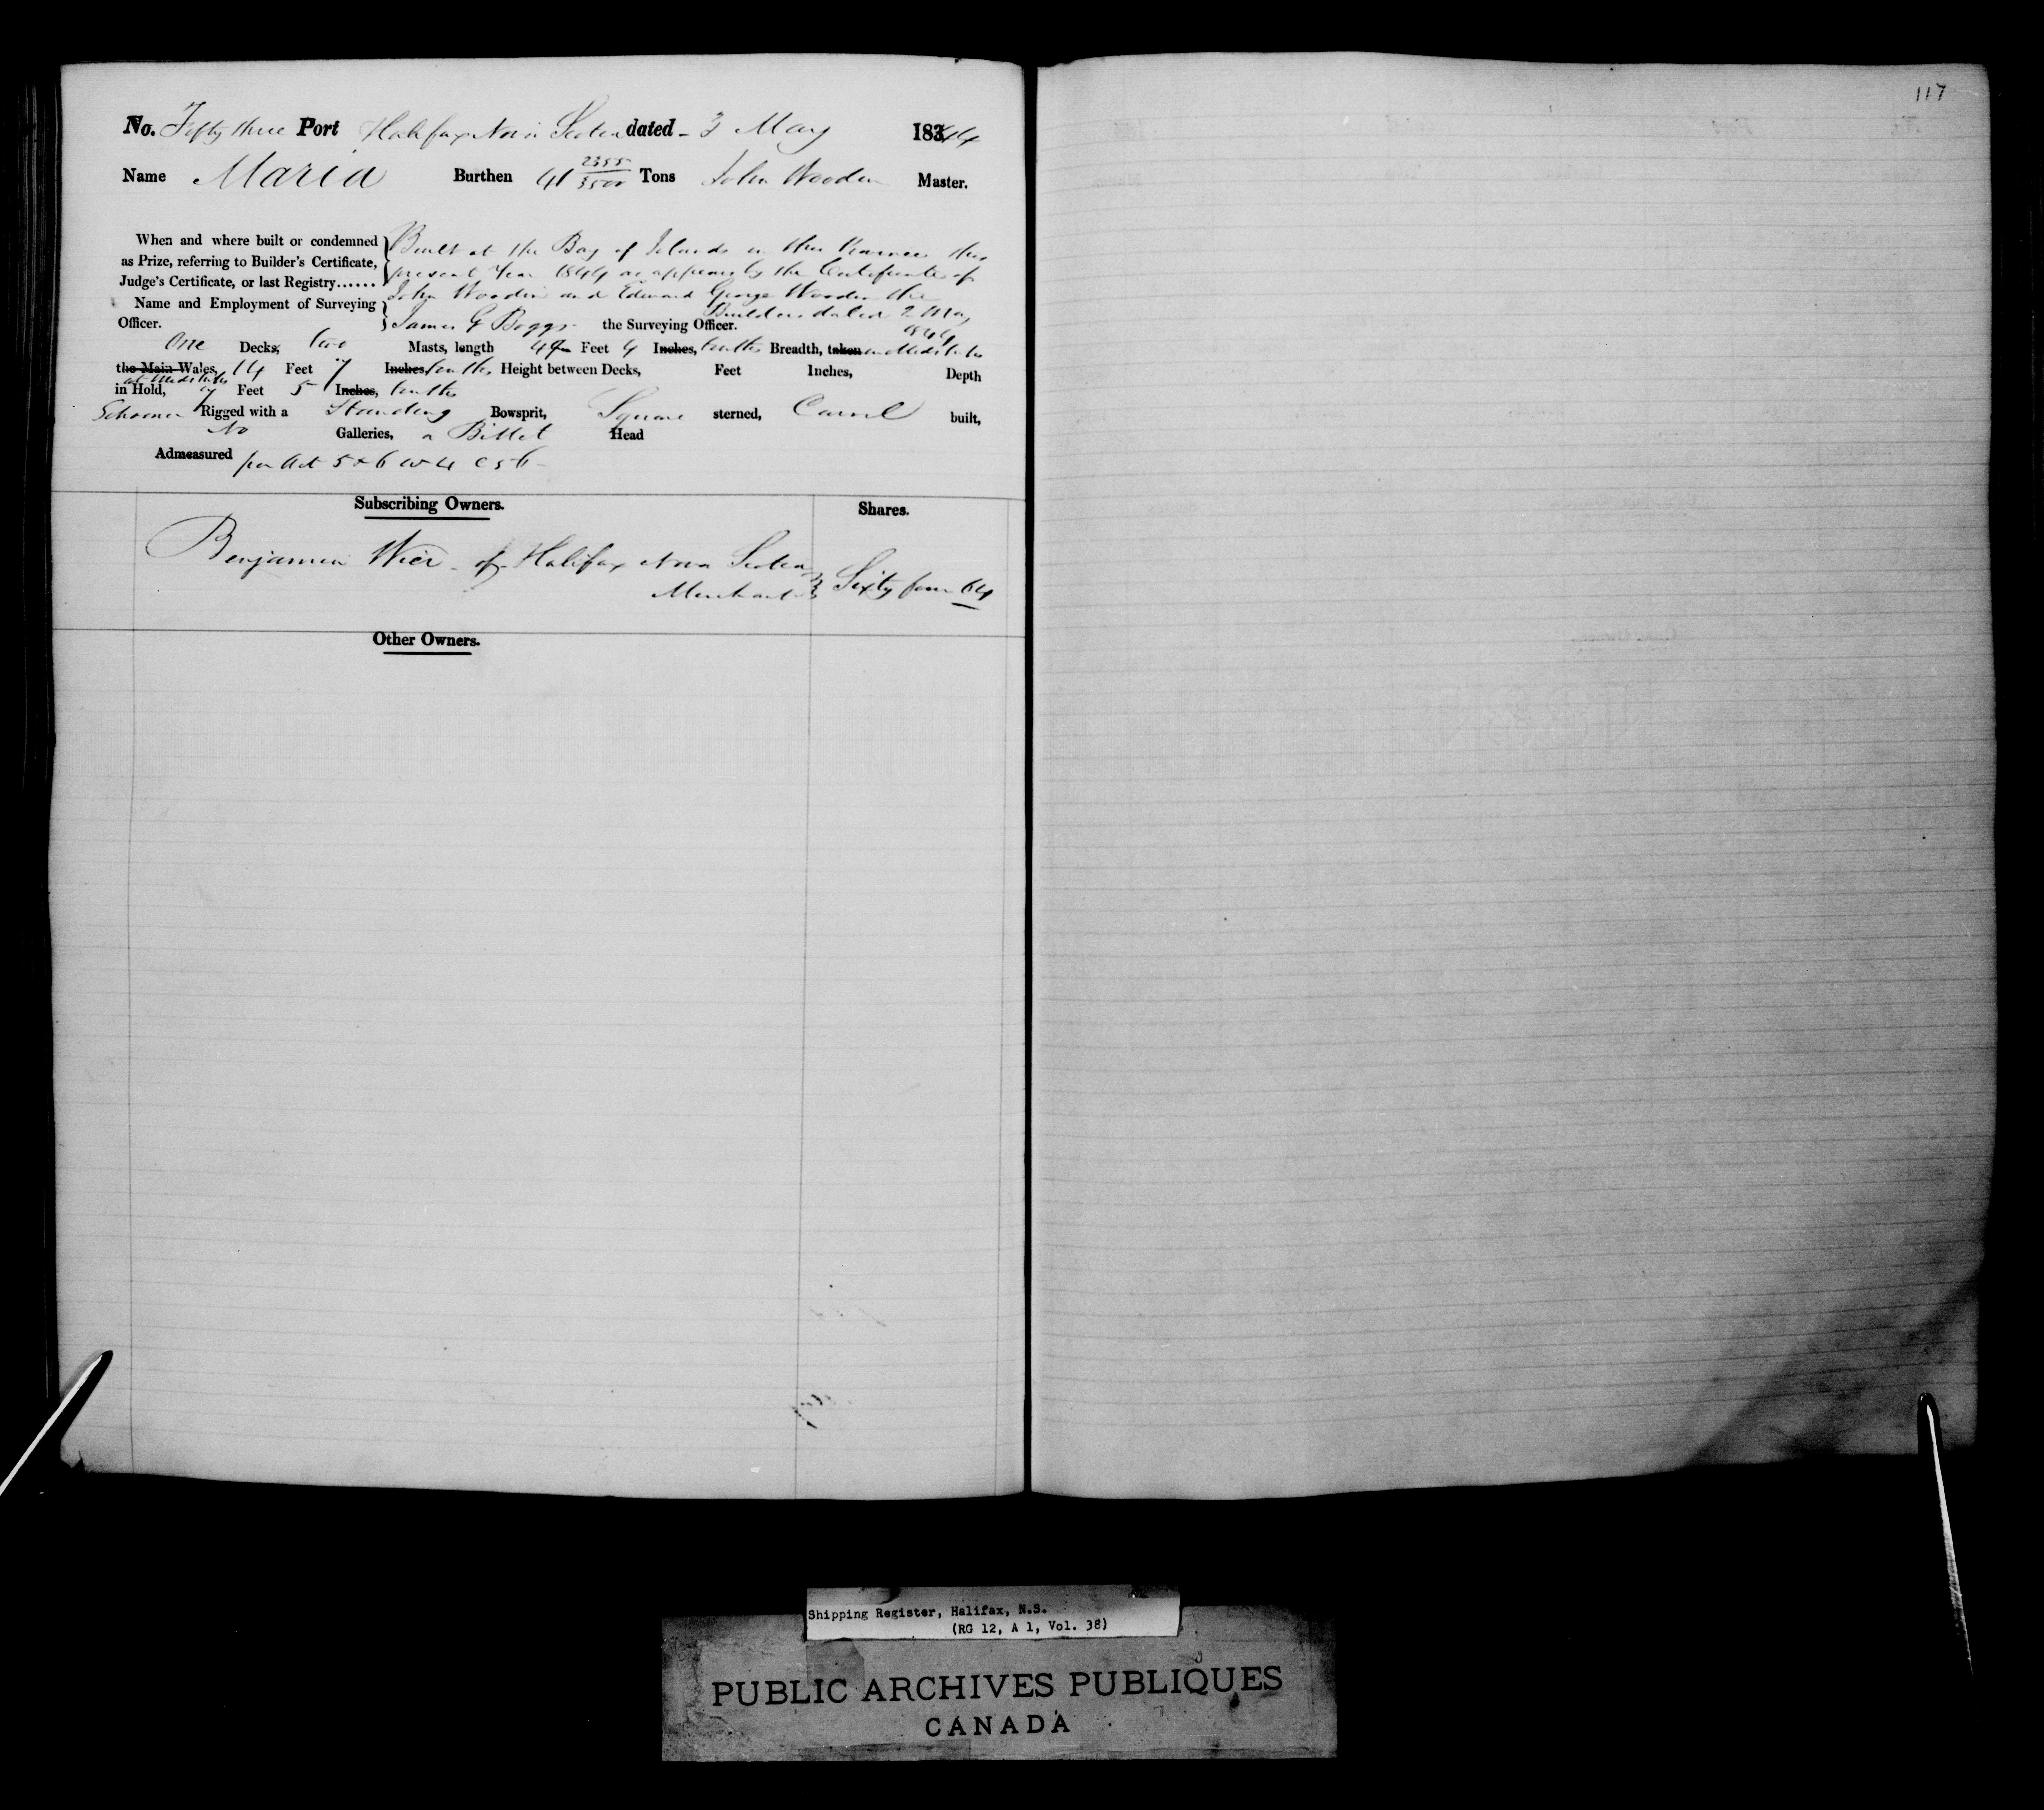 117
No. Fifty three Port Halifax Nova Scotia dated - 3 May 1844
Name Maria Burthen 41 2355/3500 Tons John Wooden Master.
When and where built or condemned as Prize, referring to Builder's Certificate, Judge's Certificate, or last Registry......
Built at the Bay of Islands in this Province this
present Year 1844 as appears by the Certificate of
John Wooden and Edward George Wooden the
Builders dated 2 May 1844
Name and Employment of Surveying Officer.
James G Boggs - the Surveying Officer.
One Decks, two Masts, length Feet 4 Inches, tenths Breadth, taken at Midships
the Main Wales, 14 Feet 7 Inches, tenths Height between Decks, Feet Inches, Depth
at Midships
in Hold, Feet 5 Inches, tenths
Schooner Rigged with a Standing Bowsprit, Square sterned, Carvel built,
No Galleries, a Billet Head
Admeasured per Act 5 & 6 W 4 C 56 -
Subscribing Owners.
Shares.
Benjamin Wier - of Halifax Nova Scotia
Merchant Sixty four 64
Other Owners.
Shipping Register, Halifax, N.S.
(RG 12, A 1, Vol. 38)
PUBLIC ARCHIVES PUBLIQUES
CANADA